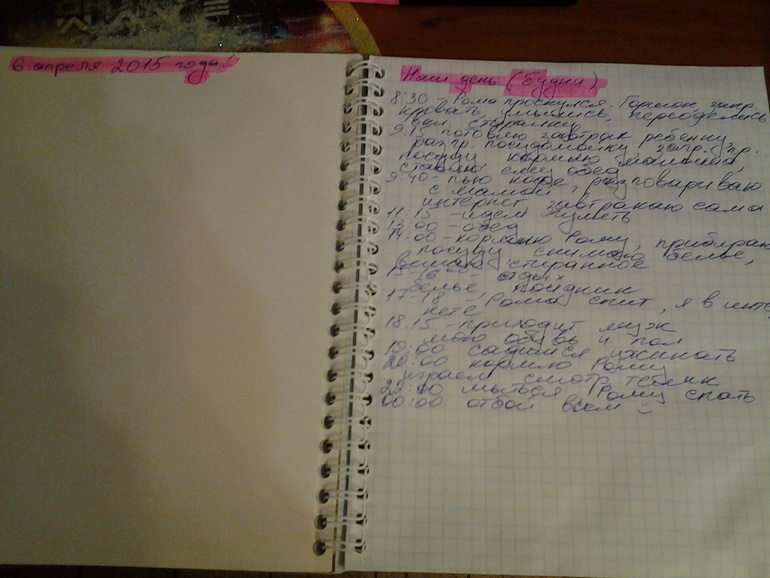 6 апреля 2015 года!
Наш день (будни)
8:30 - Рома проснулся. Горшок, запр.
кровать, умылись, переоделись
вкл. стиралку
9:15 готовлю завтрак ребенку
разгр. посудомойку загр. гр.
посуду кормлю
ставлю ему обед
9:40 - пью кофе, разговариваю
с мамой,
интернет завтракаю сама
11:15 - идем гулять
13:00 - обед
14:00 - кормлю Рому, прибираю
посуду снимаю белье,
вешаю стиранное
15-16 - отдых
белье, полдник
17-18 - Рома спит, я в инте
нете
18:15 - приходит муж
мою обувь и пол
19:00 садимся ужинать
20:00 кормлю Рому
играем смотр телик
22:00 мыться Рому спать
00:00 отбой всем